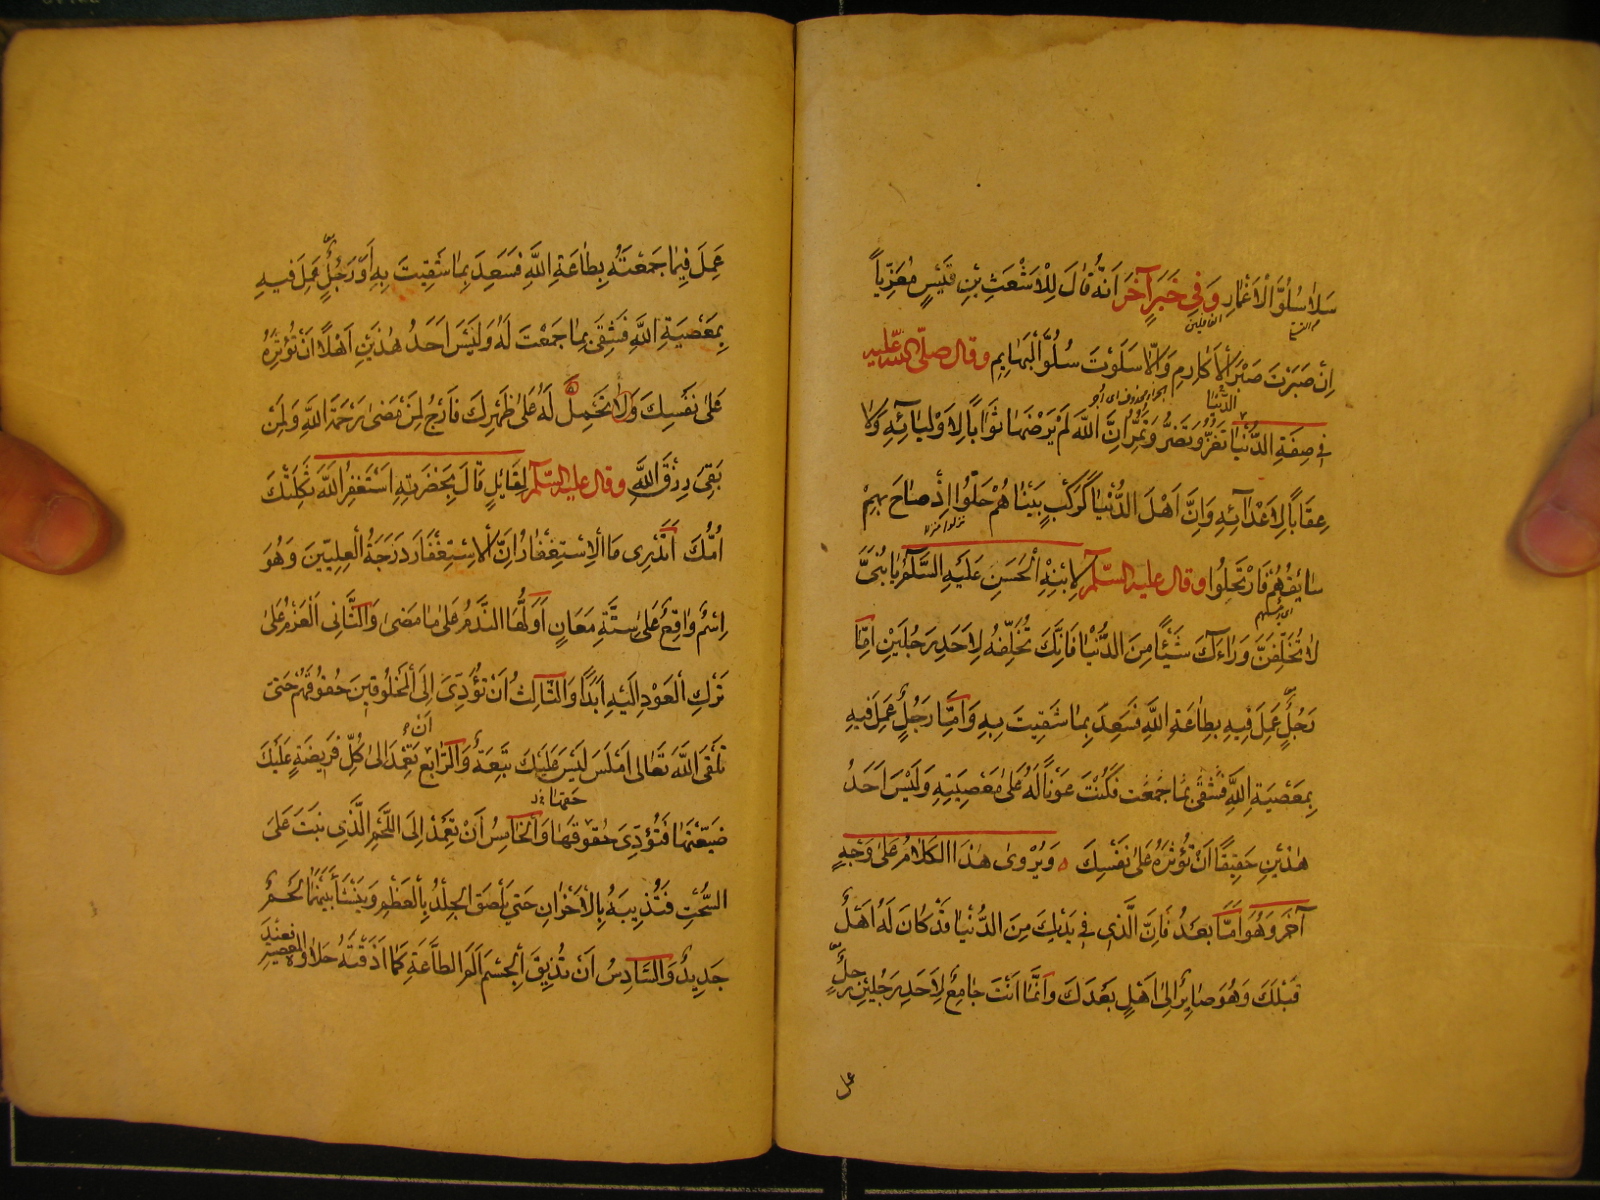 سَلَا سُلُوَّ الْاَغْمَارِ وَفِي خَبَرٍ آخَرَ اَنَّهُ قَالَ لِلْاَشْعَثِ بْنِ قَيْسٍ مُعَزِّيًا
اِنْ صَبَرْتَ صَبْرَ الْاَكَارِمِ وَاِلَّا سَلَوْتَ سُلُوَّ الْبَهَايِمِ وقال صلى الله عليه
الدنيا
في صِفَةِ الدُّنْيَا تَغُرُّ وَتَضُرُّ وَتَمُرُّ اِنَّ اللَّهَ لَمْ يَرْضَهَا ثَوَابًا لِاَوْلِيَائِهِ وَلَا
عِقَابًا لِاَعْدَائِهِ وَاِنَّ اَهْلَ الدُّنْيَا كَرَكْبٍ بَيْنَا هُمْ حَلُّوا اِذْ صَاحَ بِهِمْ
سَايِقُهُمْ فَارْتَحَلُوا وقال عليه السلم لِابْنِهِ الْحَسَنِ عَلَيْهِ السَّلَامُ يَا بُنَيَّ
لَا تُخَلِّفَنَّ وَرَاءَكَ شَيْئًا مِنَ الدُّنْيَا فَاِنَّكَ تُخَلِّفُهُ لِاَحَدِ رَجُلَيْنِ اِمَّا
رَجُلٌ عَمِلَ فِيهِ بِطَاعَةِ اللَّهِ فَسَعِدَ بِمَا شَقِيتَ بِهِ وَاِمَّا رَجُلٌ عَمِلَ فِيهِ
بِمَعْصِيَةِ اللَّهِ فَشَقِيَ بِمَا جَمَعْتَ فَكُنْتَ عَوْنًا لَهُ عَلَى مَعْصِيَتِهِ وَلَيْسَ اَحَدُ
هٰذَيْنِ حَقِيقًا اَنْ تُؤْثِرَهُ عَلَى نَفْسِكَ ه وَيُرْوَى هٰذَا الْكَلَامُ عَلَى وَجْهٍ
آخَرَ وَهُوَ اَمَّا بَعْدُ فَاِنَّ الَّذِي فِي يَدَيْكَ مِنَ الدُّنْيَا قَدْ كَانَ لَهُ اَهْلٌ
قَبْلَكَ وَهُوَ صَايِرٌ اِلَى اَهْلٍ بَعْدَكَ وَاِنَّمَا اَنْتَ جَامِعٌ لِاَحَدِ رَجُلَيْنِ رَجُلٍ
عمل
عَمِلَ فِيمَا جَمَعْتَهُ بِطَاعَةِ اللَّهِ فَسَعِدَ بِمَا شَقِيتَ بِهِ اَوْ رَجُلٍ عَمِلَ فِيهِ
بِمَعْصِيَةِ اللَّهِ فَشَقِيَ بِمَا جَمَعْتَ لَهُ وَلَيْسَ اَحَدُ هٰذَيْنِ اَهْلًا اَنْ تُؤْثِرَهُ
عَلَى نَفْسِكَ وَلَا تَحْمِلَ لَهُ عَلَى ظَهْرِكَ فَارْجُ لِمَنْ مَضَى رَحْمَةَ اللَّهِ وَلِمَنْ
بَقِيَ رِزْقَ اللَّهِ وقال عليه السلم لِقَايِلٍ قَالَ بِحَضْرَتِهِ اَسْتَغْفِرُ اللَّهَ ثَكِلَتْكَ
اُمُّكَ اَتَدْرِي مَا الْاِسْتِغْفَارُ اِنَّ الْاِسْتِغْفَارَ دَرَجَةُ الْعِلِّيِّينَ وَهُوَ
اِسْمٌ وَاقِعٌ عَلَى سِتَّةِ مَعَانٍ اَوَّلُهَا النَّدَمُ عَلَى مَا مَضَى وَالثَّانِي الْعَزْمُ عَلَى
تَرْكِ الْعَوْدِ اِلَيْهِ اَبَدًا وَالثَّالِثُ اَنْ تُؤَدِّيَ اِلَى الْمَخْلُوقِينَ حُقُوقَهُمْ حَتَّى
تَلْقَى اللَّهَ تَعَالَى اَمْلَسَ لَيْسَ عَلَيْكَ تَبِعَةٌ وَالرَّابِعُ اَنْ تَعْمِدَ اِلَى كُلِّ فَرِيضَةٍ عَلَيْكَ
ضَيَّعْتَهَا فَتُؤَدِّيَ حُقُوقَهَا وَالْخَامِسُ اَنْ تَعْمِدَ اِلَى اللَّحْمِ الَّذِي نَبَتَ عَلَى
السُّحْتِ فَتُذِيبَهُ بِالْاَحْزَانِ حَتَّى يَلْصَقَ الْجِلْدُ بِالْعَظْمِ وَيَنْشَأَ بَيْنَهُمَا لَحْمٌ
جَدِيدٌ وَالسَّادِسُ اَنْ تُذِيقَ الْجِسْمَ اَلَمَ الطَّاعَةِ كَمَا اَذَقْتَهُ حَلَاوَةَ الْمَعْصِيَةِ فَعِنْدَ